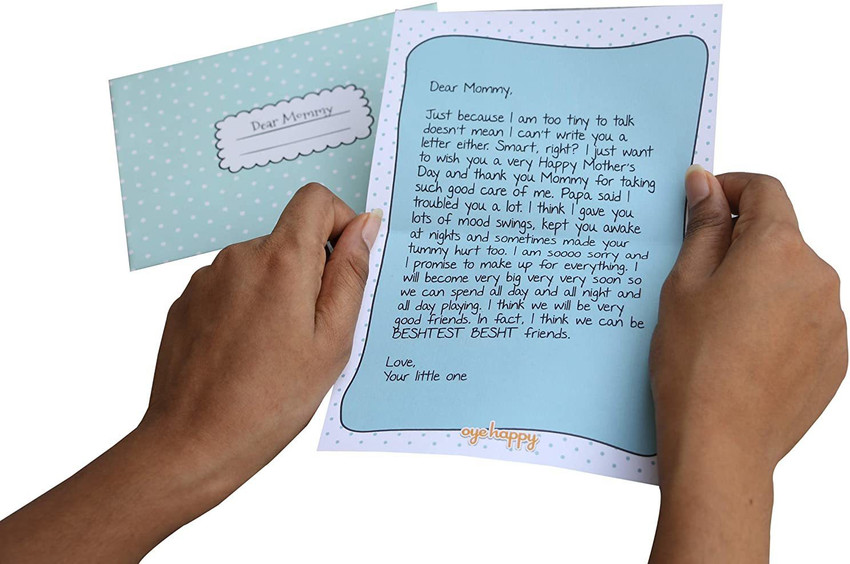 Dear Mommy
Dear Mommy,
Just because I am too tiny to talk
doesn't mean I can't write you a
letter either. Smart, right? I just want
to wish you a very Happy Mother's
Day and thank you Mommy for taking
such good care of me. Papa said I
troubled you a lot. I think I gave you
lots of mood swings, kept you awake
at nights and sometimes made your
tummy hurt too. I am soooo sorry and
I promise to make up for everything. I
will become very big very very soon so
we can spend all day and all night and
all day playing. I think we will be very
good friends. In fact, I think we can be
BESHTEST BESHT friends.
Love,
Your little one
oye happy